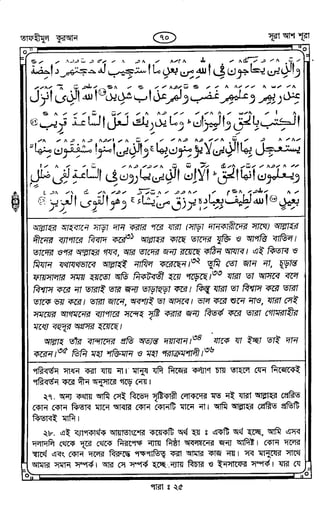 তাফহীমুল কুরআন
৭০
সূরা আশ শূরা
وَالَّذِينَ يُحَاجُّونَ فِي اللَّهِ مِنْ بَعْدِ مَا اسْتُجِيبَ لَهُ حُجَّتُهُمْ دَاحِضَةٌ
عِنْدَ رَبِّهِمْ وَعَلَيْهِمْ غَضَبٌ وَلَهُمْ عَذَابٌ شَدِيدٌ ۝ اللَّهُ الَّذِي أَنْزَلَ
الْكِتَابَ بِالْحَقِّ وَالْمِيزَانَ وَمَا يُدْرِيكَ لَعَلَّ السَّاعَةَ قَرِيبٌ ۝
يَسْتَعْجِلُ بِهَا الَّذِينَ لَا يُؤْمِنُونَ بِهَا وَالَّذِينَ آمَنُوا مُشْفِقُونَ مِنْهَا
وَيَعْلَمُونَ أَنَّهَا الْحَقُّ أَلَا إِنَّ الَّذِينَ يُمَارُونَ فِي السَّاعَةِ لَفِي ضَلَالٍ
بَعِيدٍ ۝ اللَّهُ لَطِيفٌ بِعِبَادِهِ يَرْزُقُ مَنْ يَشَاءُ وَهُوَ الْقَوِيُّ الْعَزِيزُ ۝
আল্লাহর আহবানে সাড়া দান করার পরে যারা (সাড়া দানকারীদের সাথে) আল্লাহর
দীনের ব্যাপারে বিবাদ করে৩১ আল্লাহর কাছে তাদের যুক্তি ও আপত্তি বাতিল।
তাদের ওপর আল্লাহর গযব, আর তাদের জন্য রয়েছে কঠিন আযাব। এই কিতাব ও
মিযান যথাযথভাবে আল্লাহই নাযিল করেছেন।৩২ তুমি তো জান না, চূড়ান্ত
ফায়সালার সময় হয়তো অতি নিকটবর্তী হয়ে পড়েছে।৩৩ যারা তা আসবে বলে
বিশ্বাস করে না তারাই তার জন্য তাড়াহুড়া করে। কিন্তু যারা তা বিশ্বাস করে তারা
তাকে ভয় করে। তারা জানে, অবশ্যই তা আসবে। ভাল করে শুনে নাও, যারা সেই
সময়ের আগমনের ব্যাপারে সন্দেহ সৃষ্টি করার জন্য বিতর্ক করে তারা গোমরাহীর
মধ্যে বহুদূর অগ্রসর হয়েছে।
আল্লাহ তাঁর বান্দাদের প্রতি অত্যন্ত দয়াবান।৩৪ যাকে যা ইচ্ছা তাই দান
করেন।৩৫ তিনি মহা শক্তিমান ও মহা পরাক্রমশালী।৩৬
পরিবর্তন সাধন করা যায় না। মানুষ যদি নিজের কল্যাণ চায় তাহলে যেন নিজেকেই
পরিবর্তন করে দীন অনুসারে গড়ে নেয়।
২৭. অন্য কথায় আমি সেই বিভেদ সৃষ্টিকারী লোকদের মত নই যারা আল্লাহর প্রেরিত
কোন কোন কিতাব মানে আবার কোন কোনটি মানে না। আমি আল্লাহর প্রেরিত প্রতিটি
কিতাবই মানি।
২৮. এই ব্যাপকার্থক আয়াতাংশের কয়েকটি অর্থ হয় : একটি অর্থ হচ্ছে, আমি এসব
দলাদলি থেকে দূরে থেকে নিরপেক্ষ ন্যায় নিষ্ঠা অবলম্বনের জন্য আদিষ্ট। কোন দলের
স্বার্থে এবং কোন দলের বিরুদ্ধে পক্ষপাতিত্ব করা আমার কাজ নয়। সব মানুষের সাথে
আমার সমান সম্পর্ক। আর সে সম্পর্ক হচ্ছে ন্যায় বিচার ও ইনসাফের সম্পর্ক। যার যে
পারা : ২৫